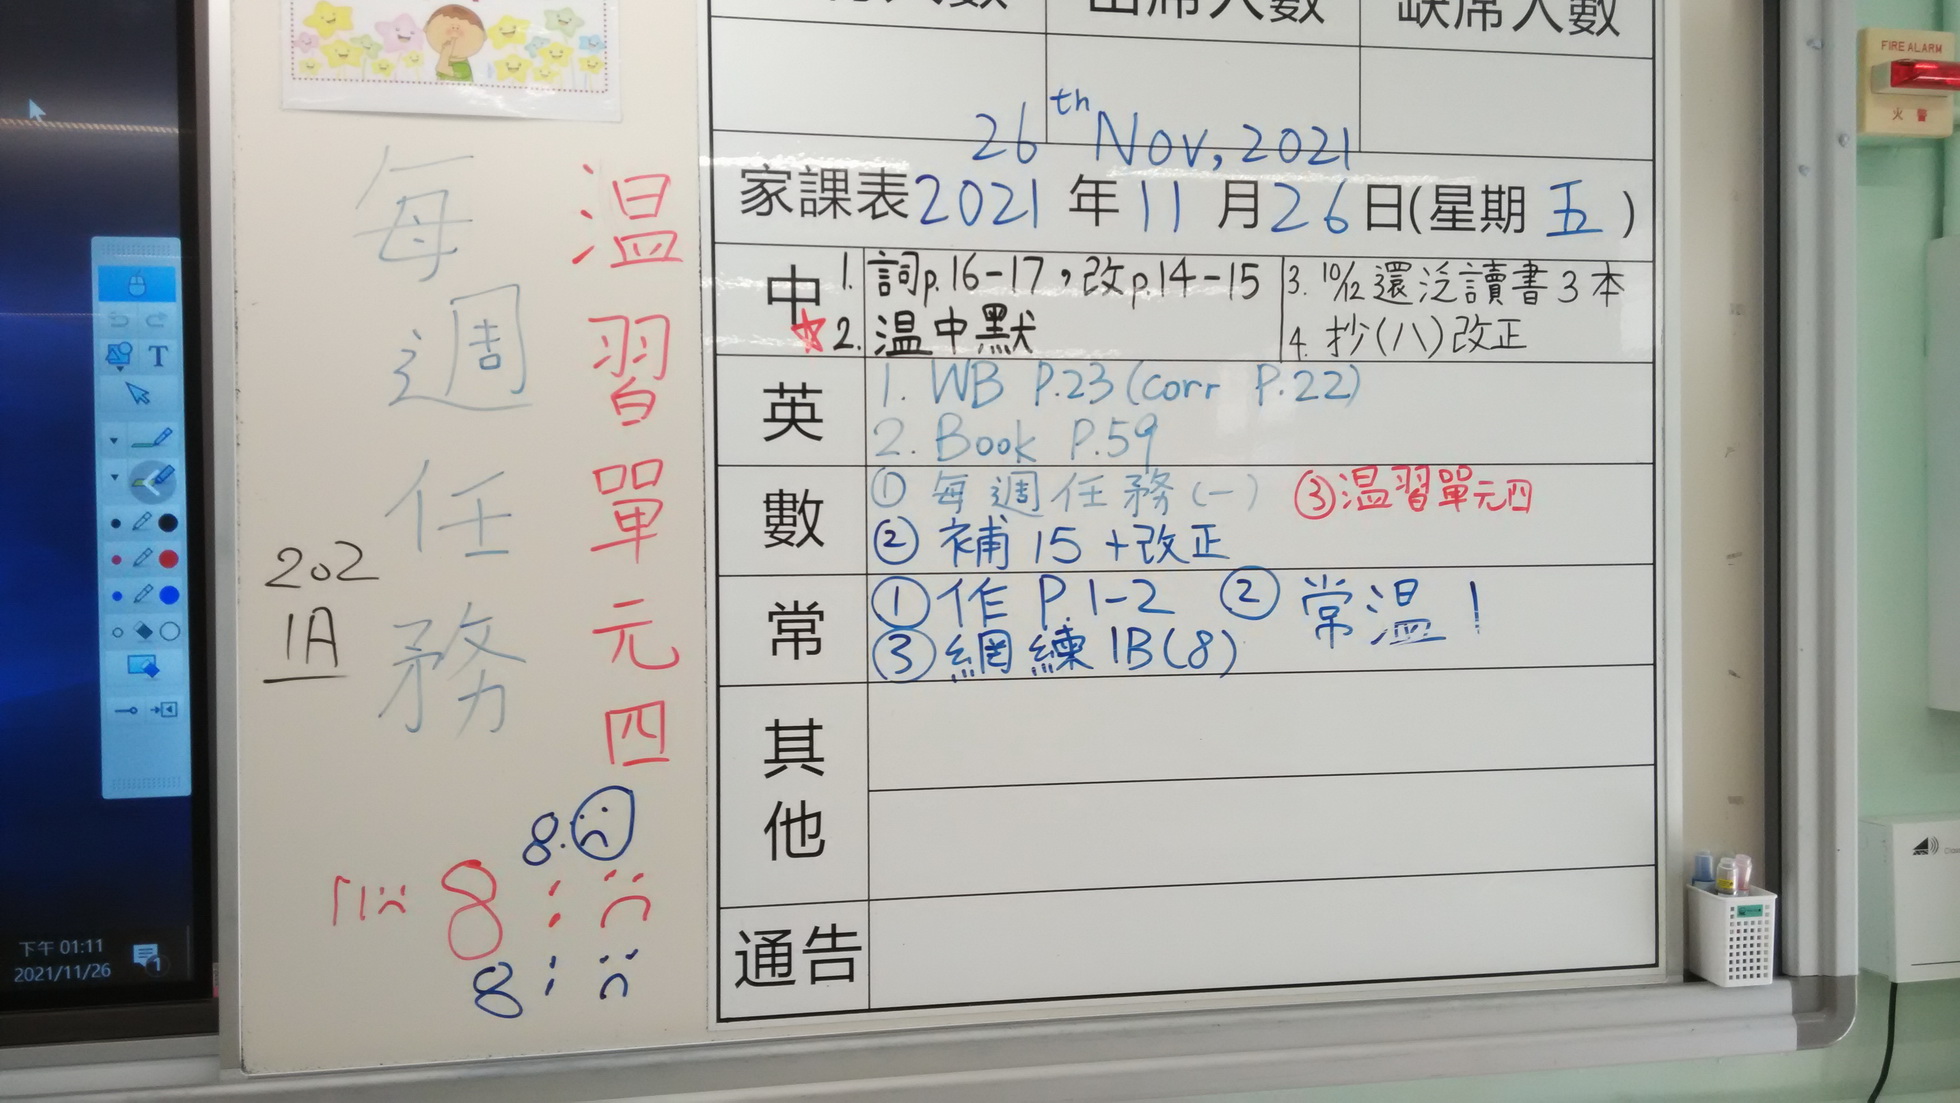 出席人數
缺席人數
26th Nov, 2021
家課表2021年11月26日(星期五)
中
1. 詞p.16-17，改p.14-15
☆2. 温中默
3. 10/12還泛讀書3本
4. 抄(八)改正
英
1. WB P.23(corr P.22)
2. Book P.59
數
① 每週任務(一) ③温習單元四
② 補15+改正
常
①作P.1-2 ②常温!
③網練1B(8)
其他
通告
每週任務
温習單元四
202
1A
8:
8:
8:
FIRE ALARM
火警
T
下午 01:11
2021/11/26
1